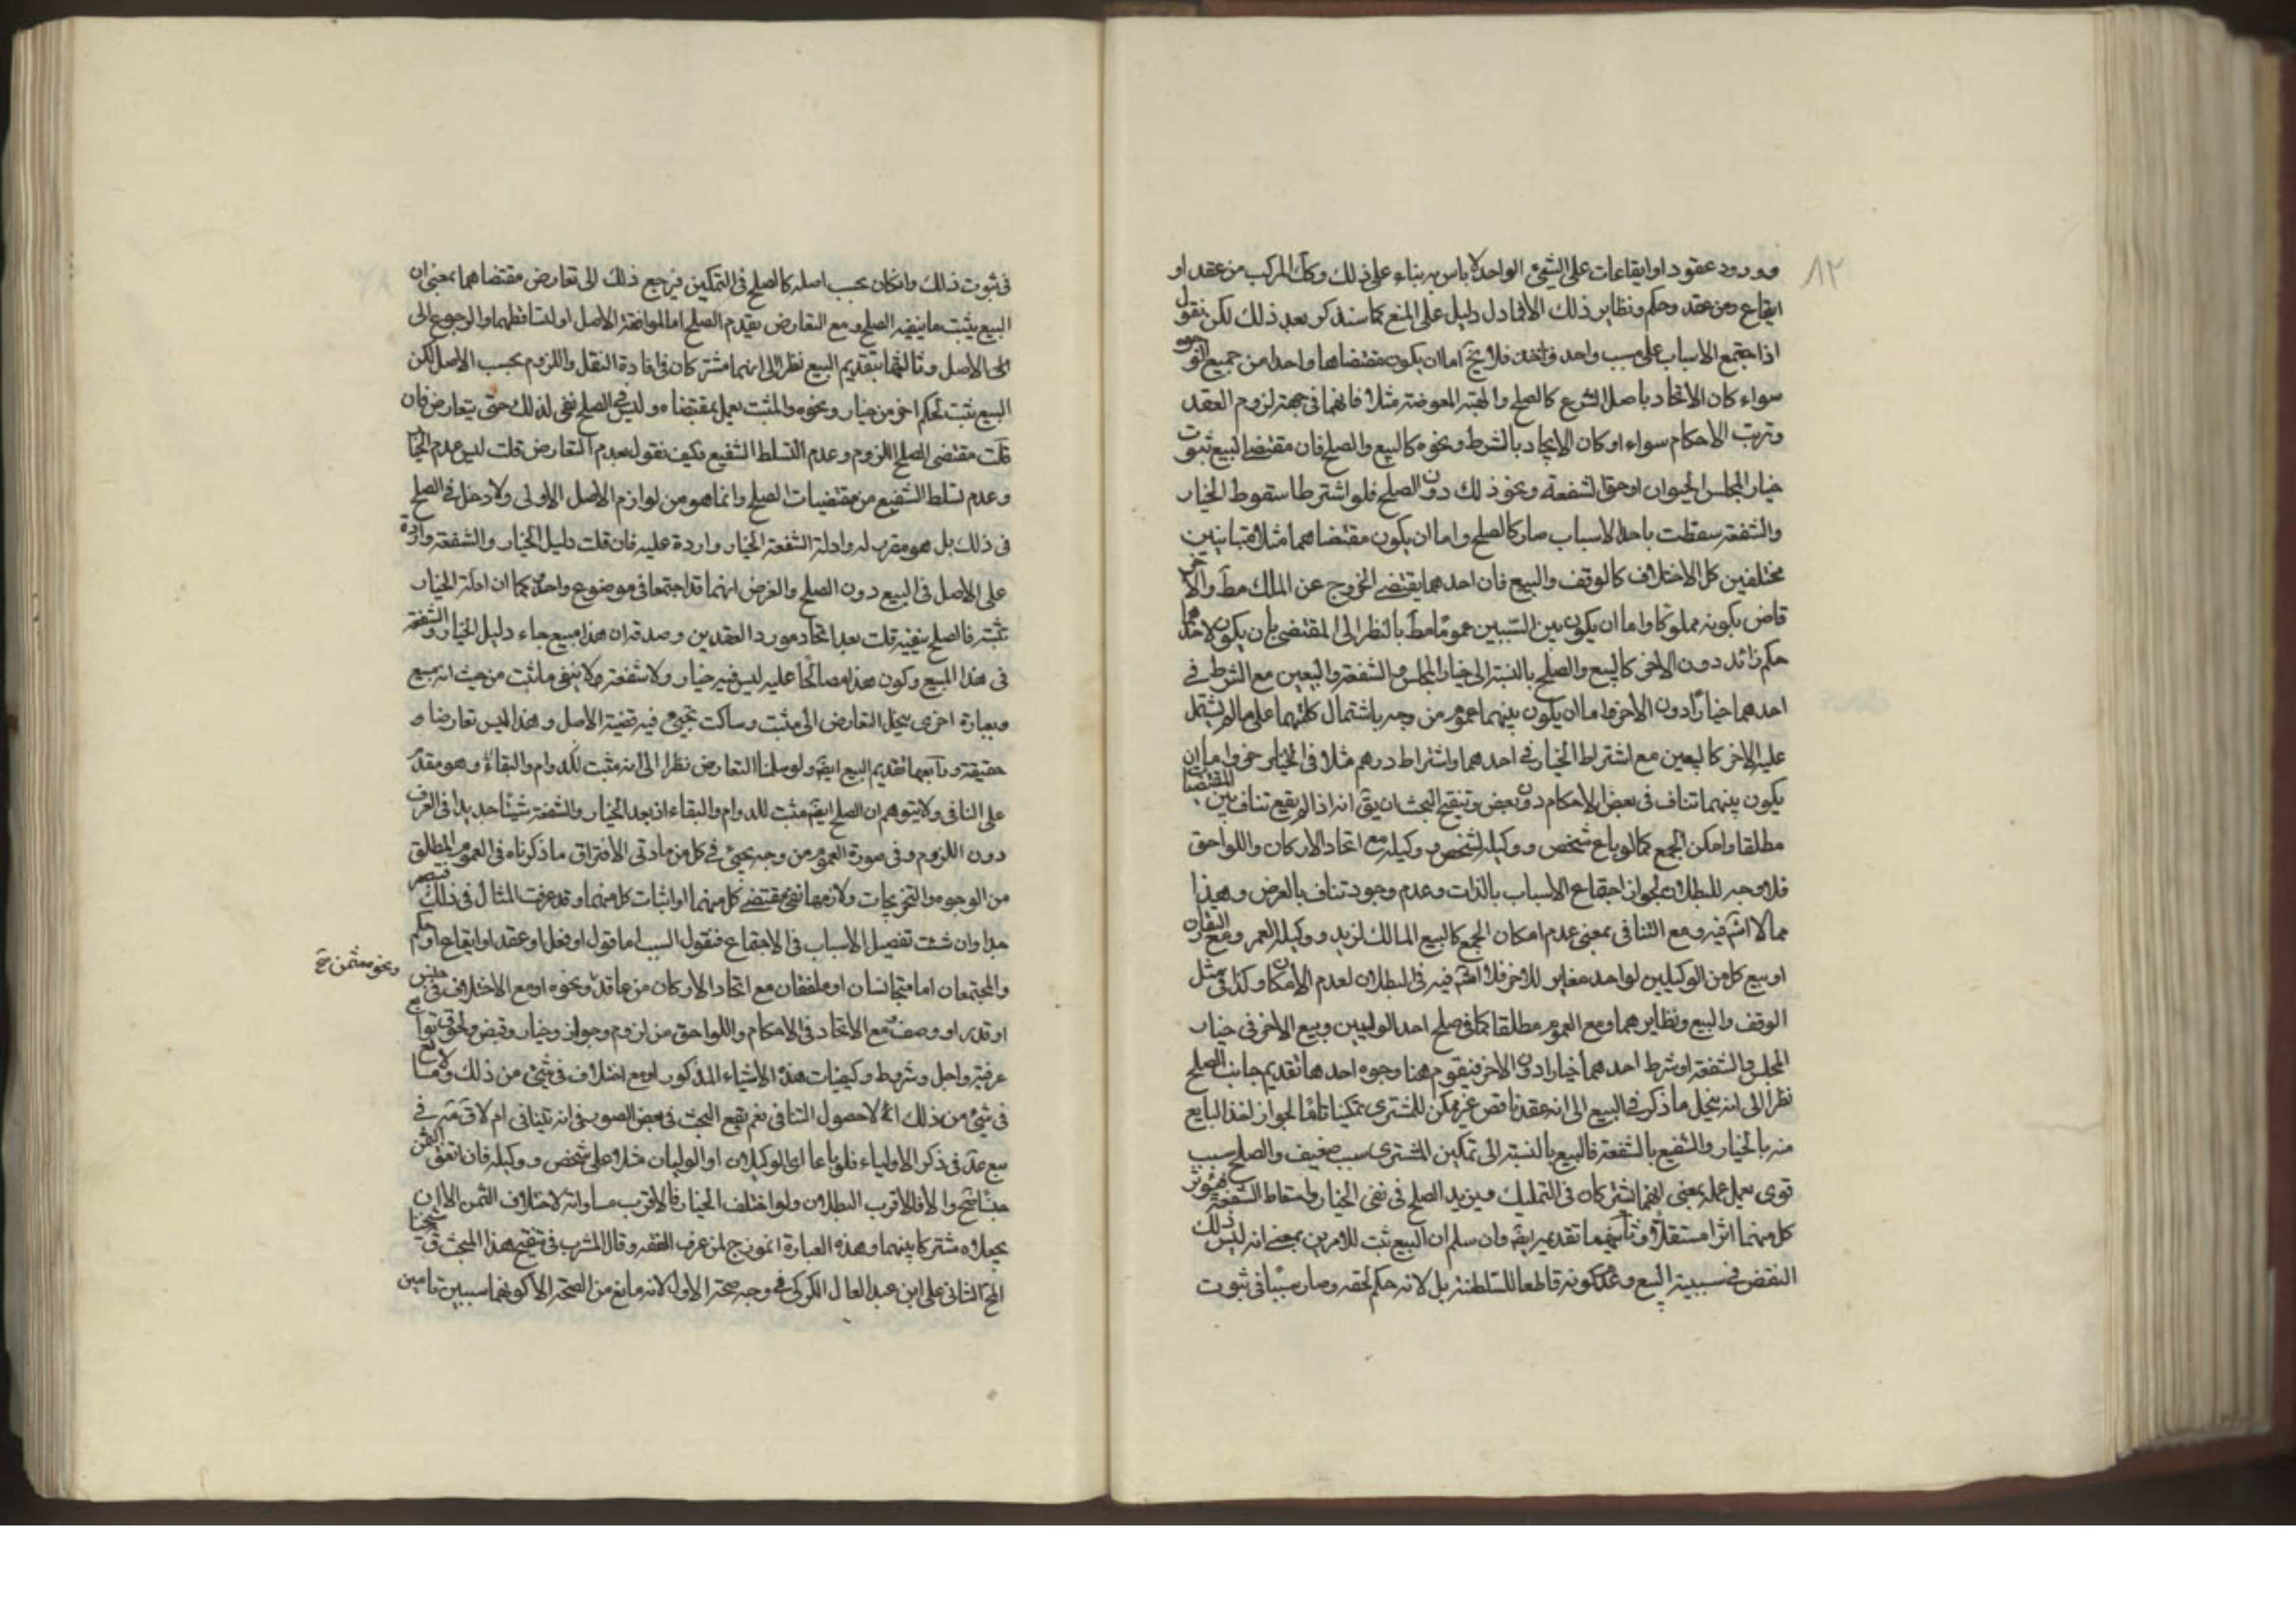 ١٢
وورود عقود او ايقاعات على الشيء الواحد لا باس به بناء على ذلك وكك المركب من عقد او
ايقاع ومن عقد وحكم ونظاير ذلك الا فيما دل دليل على المنع كما سنذكر بعد ذلك لكن نقول
اذا اجتمع الاسباب على مسبب واحد فلا يخ اما ان يكون مقتضاها واحدا من جميع الوجوه
سواء كان الاتحاد باصل الشرع كالصلح والهبة المعوضة مثلا فانهما في جهة لزوم العقد
وترتب الاحكام سواء او كان الاتحاد بالشرط ونحوه كالبيع والصلح فان مقتضى البيع ثبوت
خيار المجلس الحيوان او حق الشفعة ونحو ذلك دون الصلح فلو اشترطا سقوط الخيار
والشفعة سقطت باحد الاسباب صار كالصلح واما ان يكون مقتضاهما مثلا متباينين
مختلفين كل الاختلاف كالوقف والبيع فان احدهما يقتضي الخروج عن الملك مط والاخر
قاض بكونه مملوكا واما ان يكون بين السببين عموما مط بالنظر الى المقتضى بان يكون لاحدهما
حكم زائد دون الاخر كالبيع والصلح بالنسبة الى خيار المجلس والشفعة والبيعين مع الشرط في
احدهما خيارا دون الاخر واما ان يكون بينهما عموم من وجه باشتمال كلتيهما على ما لم يشتمل
عليه الاخر كالبيعين مع اشتراط الخيار في احدهما واشتراط درهم مثلا في الخيار خر واما ان
يكون بينهما تناف في بعض الاحكام دون بعض وتنقيح البحث ان يق انه اذا لم يقع تناف بين المقتضا
مطلقا وامكن الجمع كما لو باع شخص ووكيله لشخص ووكيله مع اتحاد الاركان واللواحق
فلا وجه للبطلان لجواز اجتماع الاسباب بالذات وعدم وجود تناف بالعرض وهذا
مما لا اش فيه ومع التنافي بمعنى عدم امكان الجمع كالبيع المالك لزيد ووكيله لعمر ومع التقارن
او بيع كل من الوكيلين لواحد مغاير للاخر فلا اش فيه في البطلان لعدم الامكان وكذا في مثل
الوقف والبيع ونظايرهما ومع العموم مطلقا كما في صلح احد الوليين وبيع الاخر في خيار
المجلس والشفعة او شرط احدهما خيارا دون الاخر فيقوم هنا وجوه احدها تقديم جانب الصلح
نظرا الى انه ينحل ما ذكر في البيع الى انه عقد ناقص غير ممكن للمشتري تمكينا تاما لجواز اخذ البايع
منه بالخيار والشفيع بالشفعة فالبيع بالنسبة الى تمكين المشتري سبب ضعيف والصلح سبب
قوى يعمل عمله بمعنى انهما اشتركان في التمليك ويزيد الصلح في نفي الخيار واسقاط الشفعة فيؤثر
كل منهما اثرا مستقلا وثانيهما تقديم ايضه وان سلم ان البيع ثبت للامرين بمعنى انه ليس ذلك
النقض في سببية البيع وعدم كونه قاطعا للسلطنة بل لانه حكم لحقه وصار سببا في ثبوت
في ثبوت ذلك وان كان بحسب اصله كالصلح في التمكين فيرجع ذلك الى تعارض مقتضاهما بمعنى ان
البيع يثبت ما ينفيه الصلح ومع التعارض يقدم الصلح اما لموافقة الاصل او لتساقطهما والرجوع الى
الى الاصل وثالثها بتقديم البيع نظرا الى انهما مشتركان في افادة النقل واللزوم بحسب الاصل لكن
البيع يثبت لحكم اخر من خيار ونحوه والمثبت يعمل بمقتضاه وليس في الصلح نفي لذلك حتى يتعارض فان
قلت مقتضى الصلح اللزوم وعدم التسلط الشفيع فكيف نقول بعدم التعارض قلت ليس عدم الخيا
وعدم تسلط الشفيع من مقتضيات الصلح وانما هو من لوازم الاصل الاولى ولا دخل في الصلح
في ذلك بل هو مقرر له وادلة الشفعة الخيار واردة عليه فان قلت دليل الخيار والشفعة واردة
على الاصل في البيع دون الصلح والغرض انهما قد اجتمعا في موضوع واحد فكما ان ادلة الخيار
تثبته فالصلح ينفيه قلت بعد اتحاد مورد العقدين وصدقه ان هذا مبيع جاء دليل الخيار والشفعة
في هذا المبيع وكون هذا مصالحا عليه ليس فيه خيار ولا شفعة ولا ينفي ما ثبت من حيث انه مبيع
وبعبارة اخرى ينحل التعارض الى مثبت وساكت يجيء فيه قضية الاصل وهذا ليس تعارضا و
حقيقة ورابعها تقديم البيع ايضه ولو سلمنا التعارض نظرا الى انه مثبت للدوام والبقاء وهو مقدم
على النافي ولا يتوهم ان الصلح ايضه مثبت للدوام والبقاء اذ يعد الخيار والشفعة شيئا جديدا في العرف
دون اللزوم وفي صورة العموم من وجه يجيء في كل من مادتي الافتراق ما ذكرناه في العموم المطلق
من الوجوه والتخريجات ولازمها نفي مقتضى كل منهما او اثبات كل منهما وقد عرفت المثال في ذلك فتبصر
جدا وان شئت تفصيل الاسباب في الاجتماع فنقول السبب اما قول او فعل او عقد او ايقاع او حكم
والمجتمعان اما متجانسان او ملفقان مع اتحاد الاركان من عاقد ونحوه او مع الاختلاف في جنس
ونحو مثمن خ
او قدر او وصف مع الاتحاد في الاحكام واللواحق من لزوم وجواز وخيار وقبض ولحوق توابع
عرفية واجل وشروط وكيفيات هذه الاشياء المذكور او مع اختلاف في شيء من ذلك ولا
في شيء من ذلك الا لحصول التنافي نعم يقع البحث في بعض الصور في انه يتنافى ام لا في
بيع عد في ذكر الاولياء فلو باعا اى الوكيلان او الوليان خلا على شخص ووكيله فان اتفق الثمن
جنسا صح والا فالاقرب البطلان ولو اختلف الخيار فالاقرب مساواته لاختلاف الثمن الا ان
يجعلاه مشتركا بينهما وهذه العبارة انموذج لمن عرف الفقه وقال المشرب في تنقيح هذا المبحث ق شيخنا
المح الثاني على ابن عبد العال الكركي في وجه صحة الاول لانه مانع من الصحة الا كونهما سببين تامين